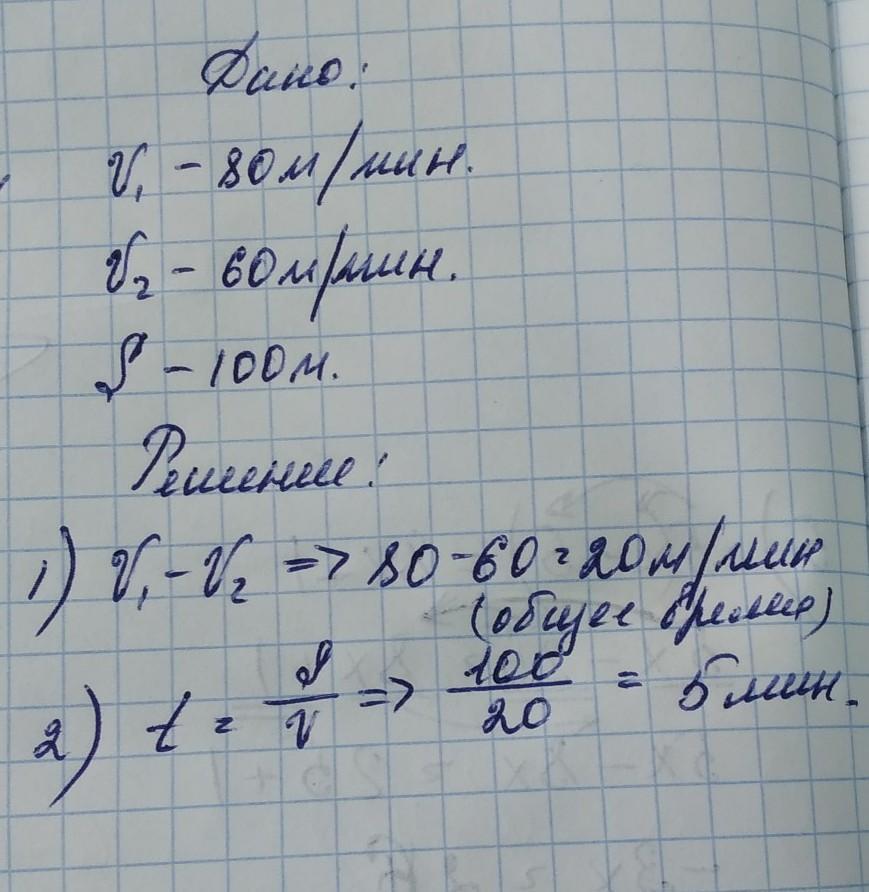 Дано:
V₁ - 80 м/мин.
V₂ - 60 м/мин.
S - 100 м.
Решение:
1) V₁ - V₂ => 80 - 60 = 20 м/мин
(общее время)
2) t = S/V => 100/20 = 5 мин.